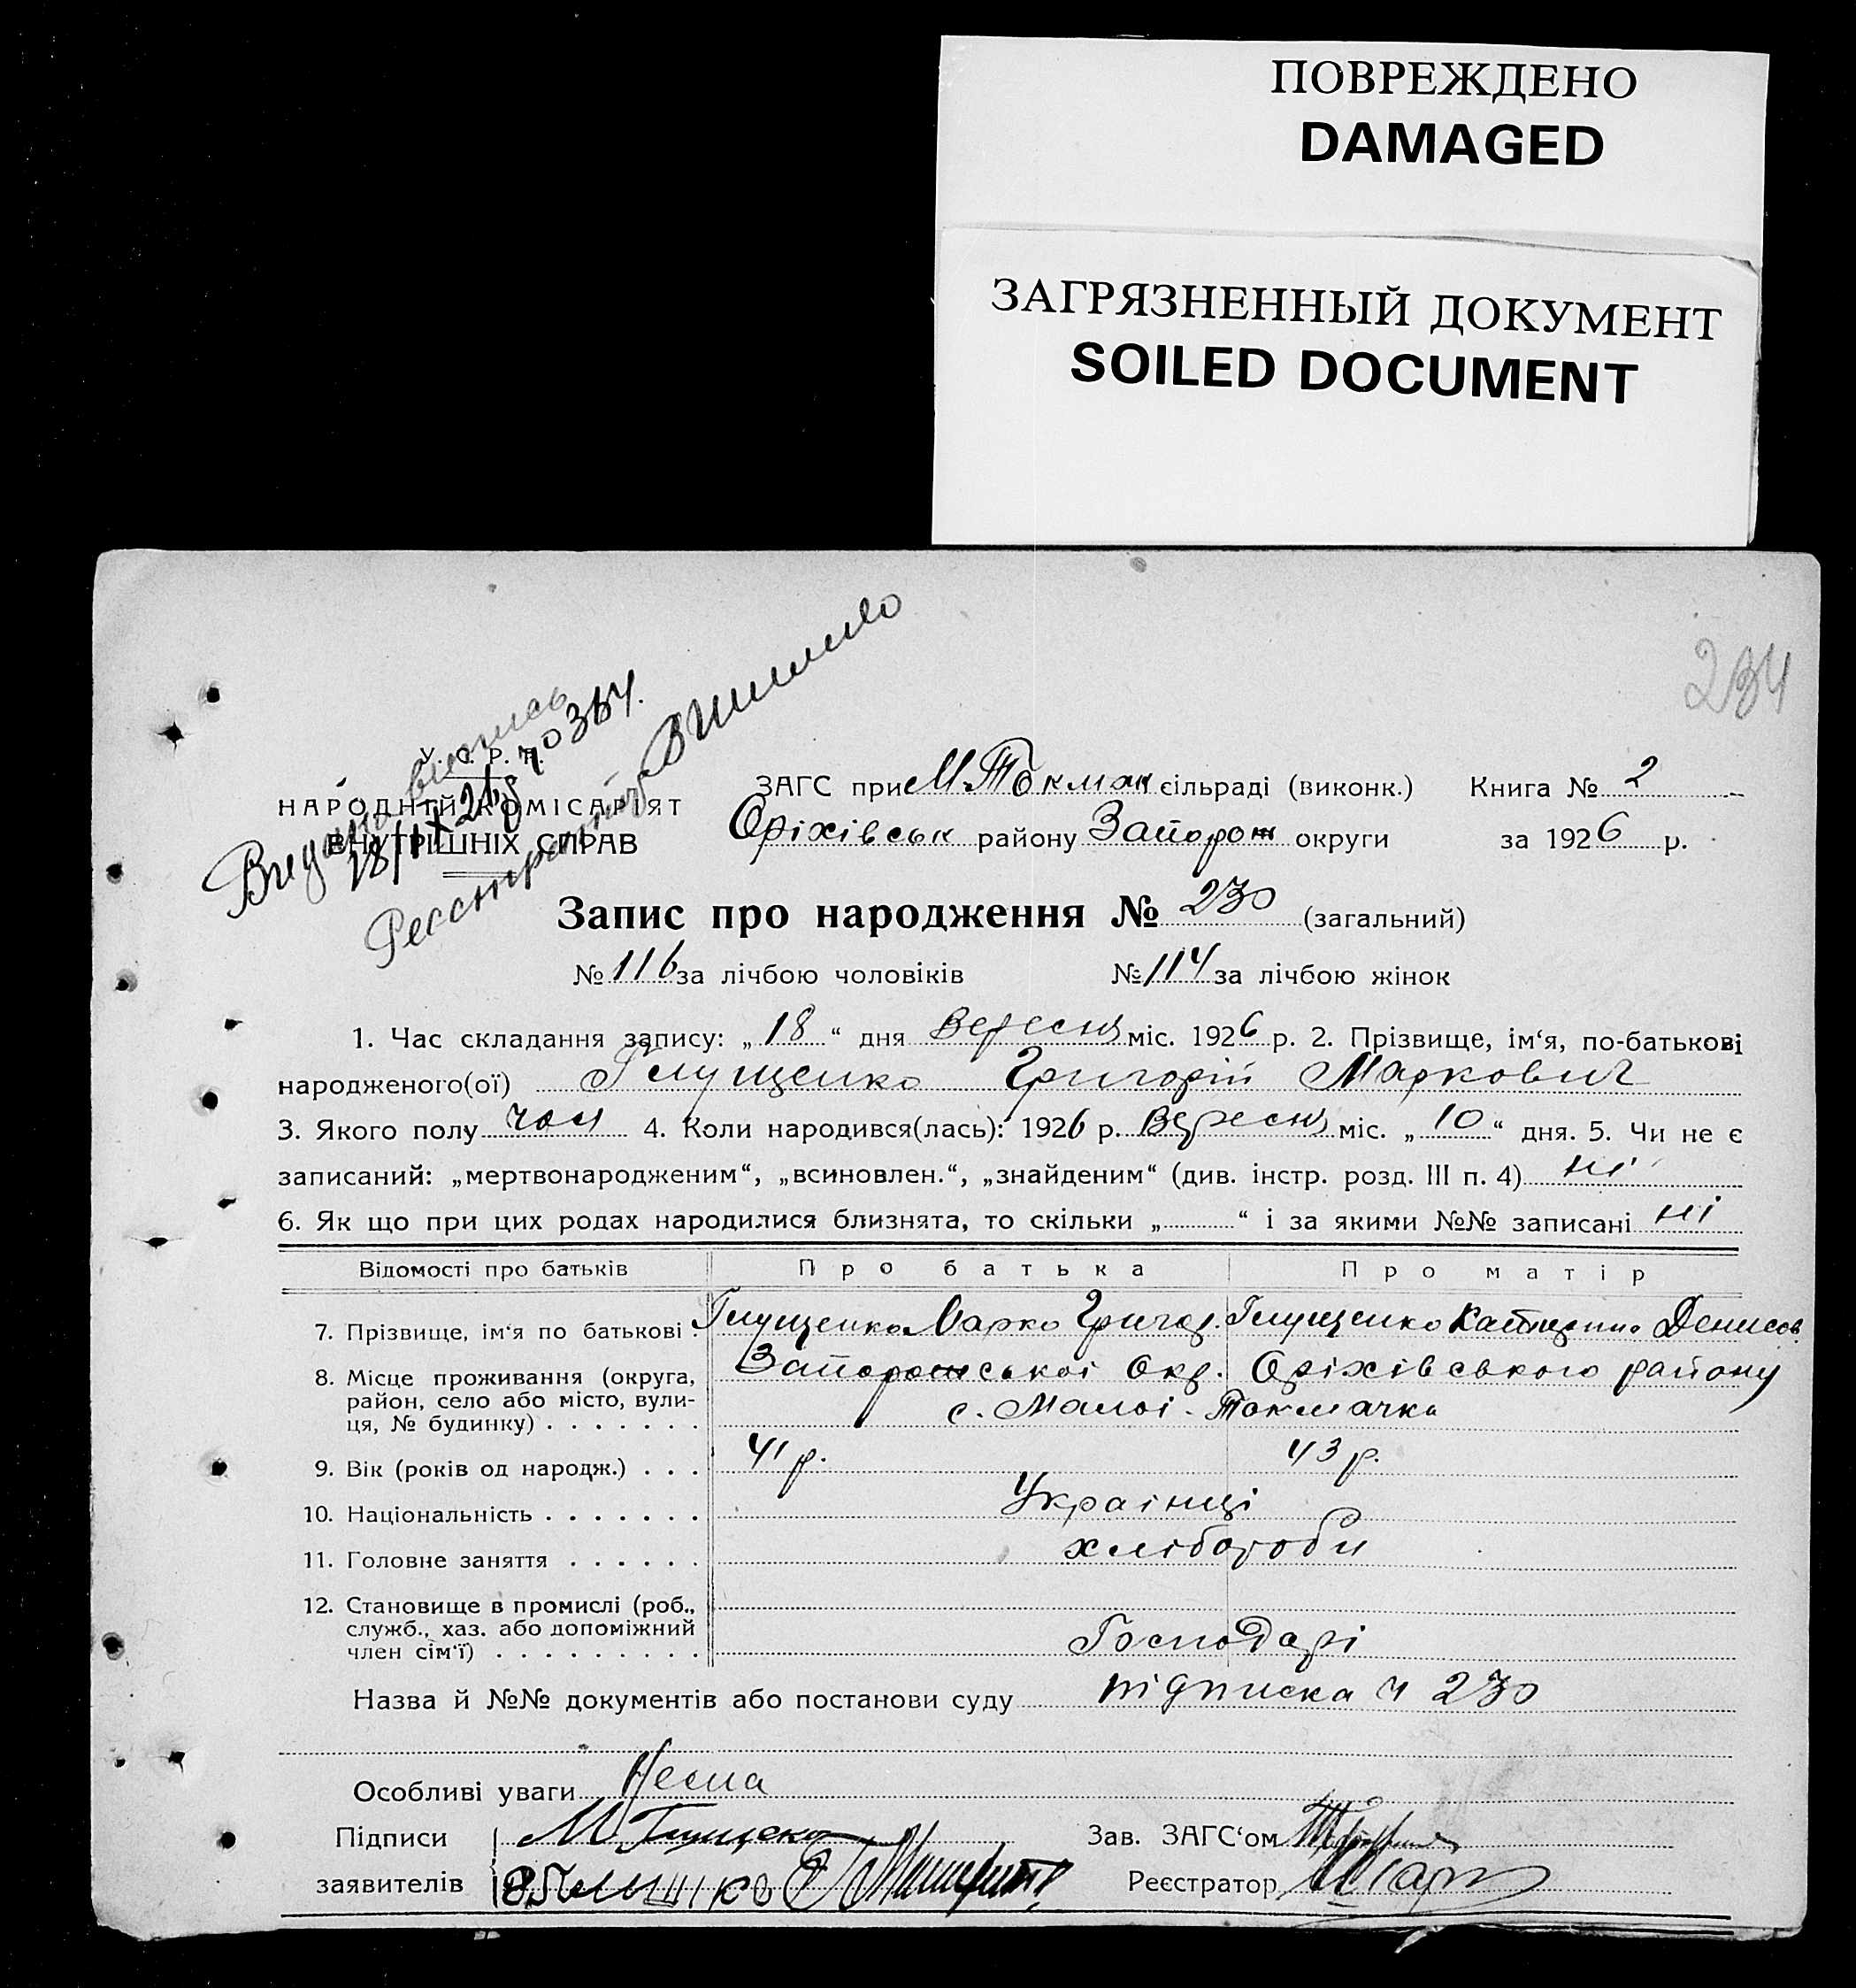 ПОВРЕЖДЕНО
DAMAGED
ЗАГРЯЗНЕННЫЙ ДОКУМЕНТ
SOILED DOCUMENT
234
У. С. Р. Р.
НАРОДНІЙ КОМІСАРІЯТ
ВНУТРІШНІХ СПРАВ
ЗАГС при М. Токмач сільраді (виконк.) Книга № 2
Оріхівськ району Запорож округи за 1926 р.
Запис про народження № 230 (загальний)
№ 116 за лічбою чоловіків № 114 за лічбою жінок
1. Час складання запису: „18“ дня Вересня міс. 1926 р. 2. Прізвище, ім‘я, по-батькові
народженого(ої) Глущенко Григорій Маркович
3. Якого полу чол 4. Коли народився(лась): 1926 р. Вересня міс. „10“ дня. 5. Чи не є
записаний: „мертвонародженим“, „всиновлен.“, „знайденим“ (див. інстр. розд. III п. 4) ні
6. Як що при цих родах народилися близнята, то скільки „ “ і за якими №№ записані ні
Відомості про батьків Про батька Про матір
7. Прізвище, ім‘я по батькові. Глущенко Марко Григор. Глущенко Катерина Денисов.
8. Місце проживання (округа, Запорожської Окр. Оріхівського району
район, село або місто, вули- с. Малої-Токмачка
ця, № будинку) . . . . . . .
9. Вік (років од народж.) . . . 41 р. 43 р.
10. Національність . . . . . . . Українці
11. Головне заняття . . . . . . хлібороби
12. Становище в промислі (роб.,
служб., хаз. або допоміжний
член сім‘ї) . . . . . . . . . Господарі
Назва й №№ документів або постанови суду підписка ч 230
Особливі уваги Нема
Підписи М. Глущенко Зав. ЗАГС‘ом
заявителів Реєстратор